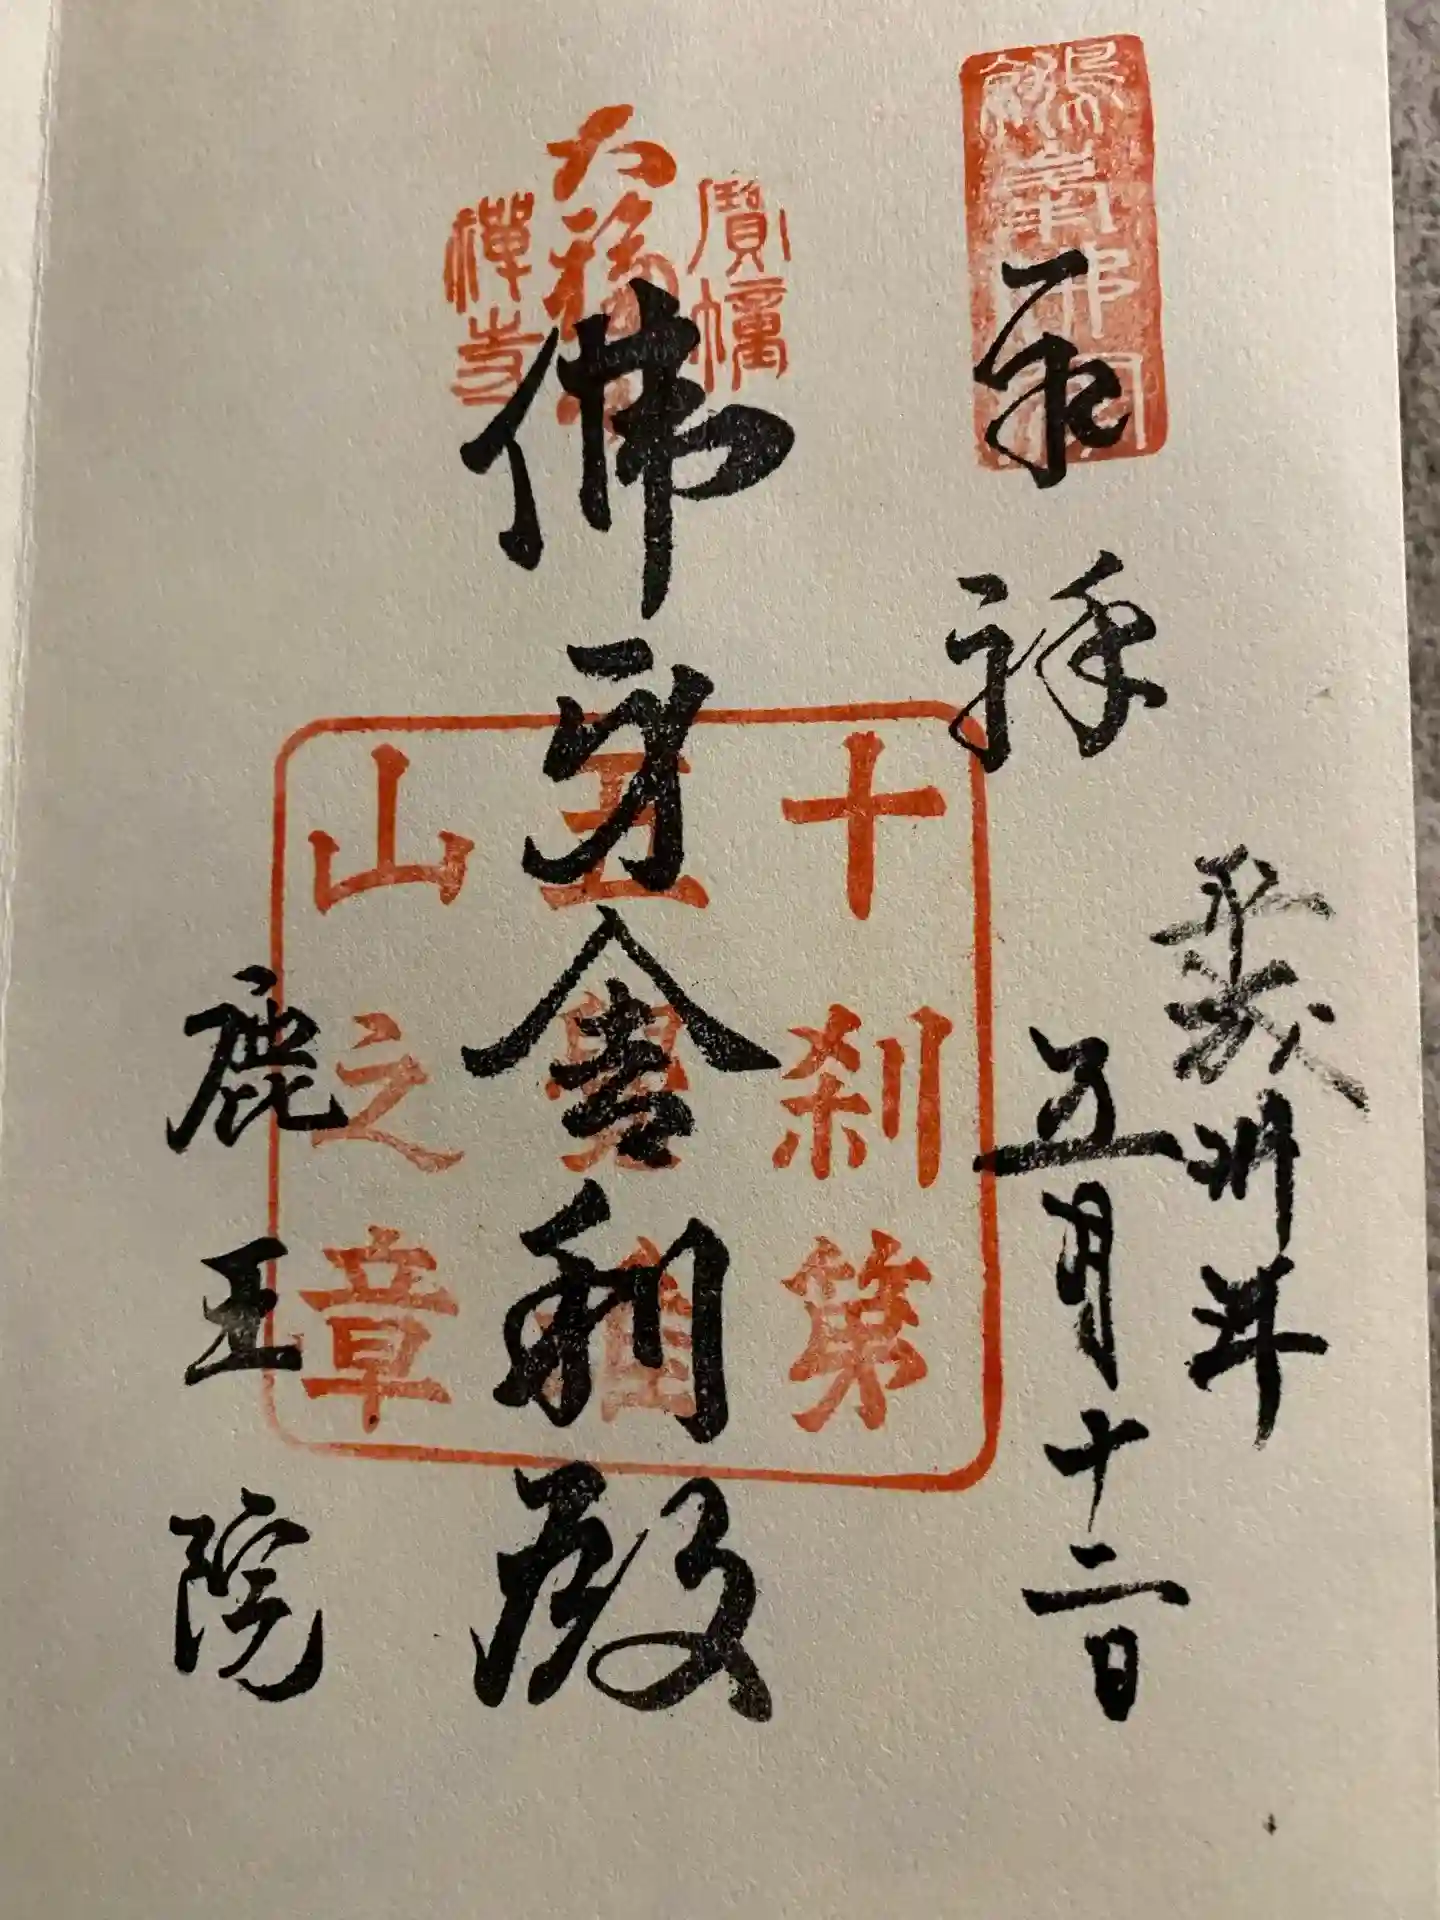 平成卅年
五月十二日
佛牙舎利殿
鹿王院
寶幢
大福田
禪寺
十刹第
五覺雄
山之章